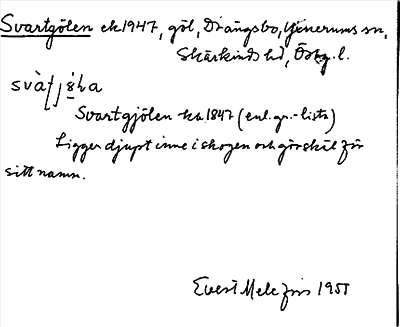 Svartgölen ek. 1947, göl, Drängsbo, Yxnerums sn,
Skärkinds hd, Östg. l.
Svartgjölen ka. 1847 (enl. gr.-lista)
Ligger djupt inne i skogen och gör skäl för
sitt namn.
Evert Melefors 1955